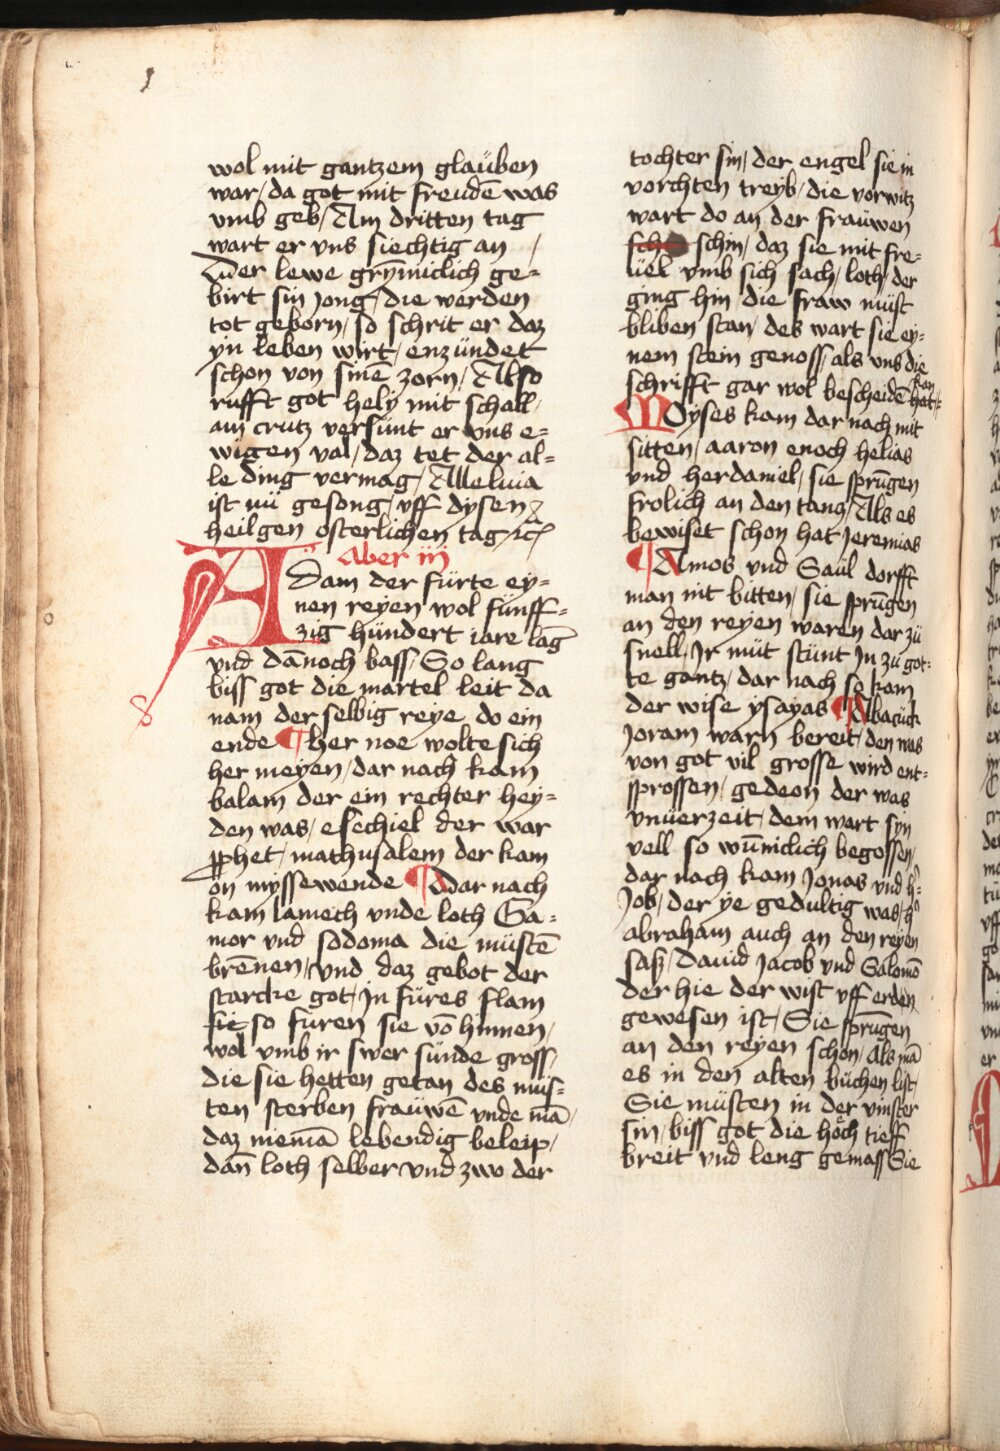 wol mit gantzem glaüben
war / da got mit freudē was
vmb geb / Am dritten tag
wart er vns siechtig an /
Der lewe grÿmiclich ge=
birt sin jong / die werden
tot geborn / so schrit er daz
yn leben wirt / enzündet
schon von sinē zorn / Also
rufft got hely mit schall /
am crutz versünt er vns e=
wigen val / daz tet der al=
le ding vermag / Alleluia
ist nü gesong / vff dysen
heilgen osterlichen tag / rc
Aber iij
Adam der fürte ey=
nen reyen wol fünff=
zig hündert iare lāg
vnd dānoch bass / So lang
biss got die martel leit da
nam der selbig reye do ein
ende ¶ her noe wolte sich
her meyen / dar nach kam
balam der ein rechter hey=
den was / esechiel der war
ꝓphet / mathusalem der kam
on myssewende ¶ Dar nach
kam lamech vnde loth Ga=
mor vnd sodoma die müstē
brēnen / vnd daz gebot der
starcke got / jn füres flam
sie so furen sie vō hinnen /
wol vmb ir swer sünde gross /
die sie hetten getan des müs=
ten sterben fraüwē vnde mā /
daz niemā lebendig beleip /
dañ loth selber vnd zwo der
tochter sin / der engel sie in
vorchten treyb / die vorwitz
wart do an der fraüwen
schin / daz sie mit fre=
uel vmb sich sach / loth der
ging hin die fraw müst
bliben stan / des wart sie ey=
nem stein genoss / als vns die
schrifft gar wol bescheidē kan hat /
Moyses kam dar nach mit
sitten / aaron enoch helias
vnd her daniel / sie sprūgen
frolich an den tang / Als es
bewiset schon hat jeremias
¶ Amos vnd Saül dorfft
man nit bitten / sie sprūgen
an den reyen waren dar zü
snell / Jr müt stünt jn zü got=
te gantz / dar nach so kam
der wise ysayas ¶ Abacück
Joram warn bereit / den was
von got vil grosse wird ent=
sprossen / gedeon der was
vnuerzeit / dem wart syn
vell so wūniclich begossen /
dar nach kam Jonas vnd h̓=
Job / der ye gedultig was / h̓
abraham auch an den reyen
sass / Dauid Jacob vnd Salomō
der hie der wist vff erden
gewesen ist / Sie sprūgen
an den reyen schon / als mā
es in den alten büchen list /
Sie müsten in der vinster
sin / biss got die höch tieff
breit vnd leng gemass Sie